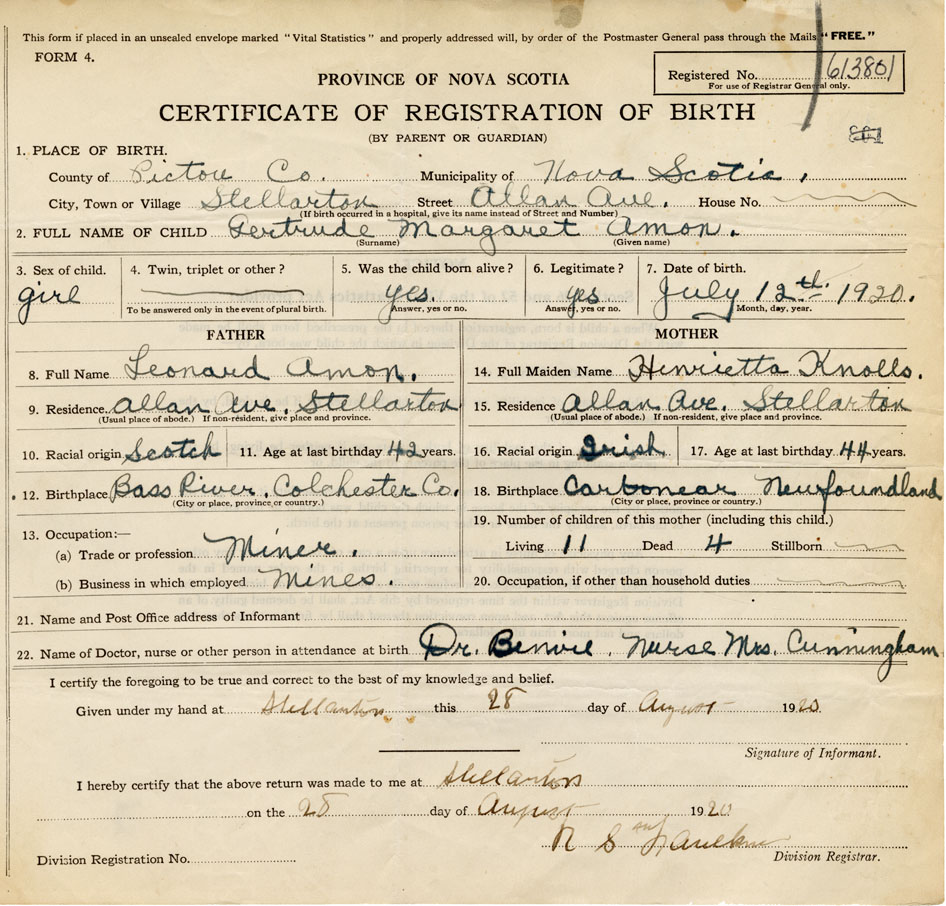 This form if placed in an unsealed envelope marked "Vital Statistics" and properly addressed will, by order of the Postmaster General pass through the Mails "FREE."
FORM 4.
Registered No. 613801
For use of Registrar General only.
PROVINCE OF NOVA SCOTIA
CERTIFICATE OF REGISTRATION OF BIRTH
(BY PARENT OR GUARDIAN)
1. PLACE OF BIRTH.
County of Pictou Co. Municipality of Nova Scotia.
City, Town or Village Stellarton Street Allan Ave. House No.
(If birth occurred in a hospital, give its name instead of Street and Number)
2. FULL NAME OF CHILD Gertrude Margaret Amon.
(Surname) (Given name)
3. Sex of child. 4. Twin, triplet or other? 5. Was the child born alive? 6. Legitimate? 7. Date of birth.
girl yes. yes July 12th 1920.
To be answered only in the event of plural birth. Answer, yes or no. Answer, yes or no. Month, day, year.
FATHER MOTHER
8. Full Name Leonard Amon. 14. Full Maiden Name Henrietta Knolls.
9. Residence. Allan Ave. Stellarton 15. Residence Allan Ave. Stellarton
(Usual place of abode.) If non-resident, give place and province. (Usual place of abode.) If non-resident, give place and province.
10. Racial origin Scotch 11. Age at last birthday 42 years. 16. Racial origin Irish 17. Age at last birthday 44 years.
12. Birthplace Bass River. Colchester Co. 18. Birthplace Carbonear Newfoundland
(City or place, province or country.) (City or place, province or country.)
13. Occupation:— 19. Number of children of this mother (including this child.)
(a) Trade or profession Miner. Living 11 Dead 4 Stillborn
(b) Business in which employed Mines. 20. Occupation, if other than household duties
21. Name and Post Office address of Informant
22. Name of Doctor, nurse or other person in attendance at birth Dr. Benvie. Nurse Mrs. Cunningham
I certify the foregoing to be true and correct to the best of my knowledge and belief.
Given under my hand at Stellarton this 28 day of August 1920.
Signature of Informant.
I hereby certify that the above return was made to me at Stellarton
on the 28 day of August 1920
Division Registration No. Division Registrar.